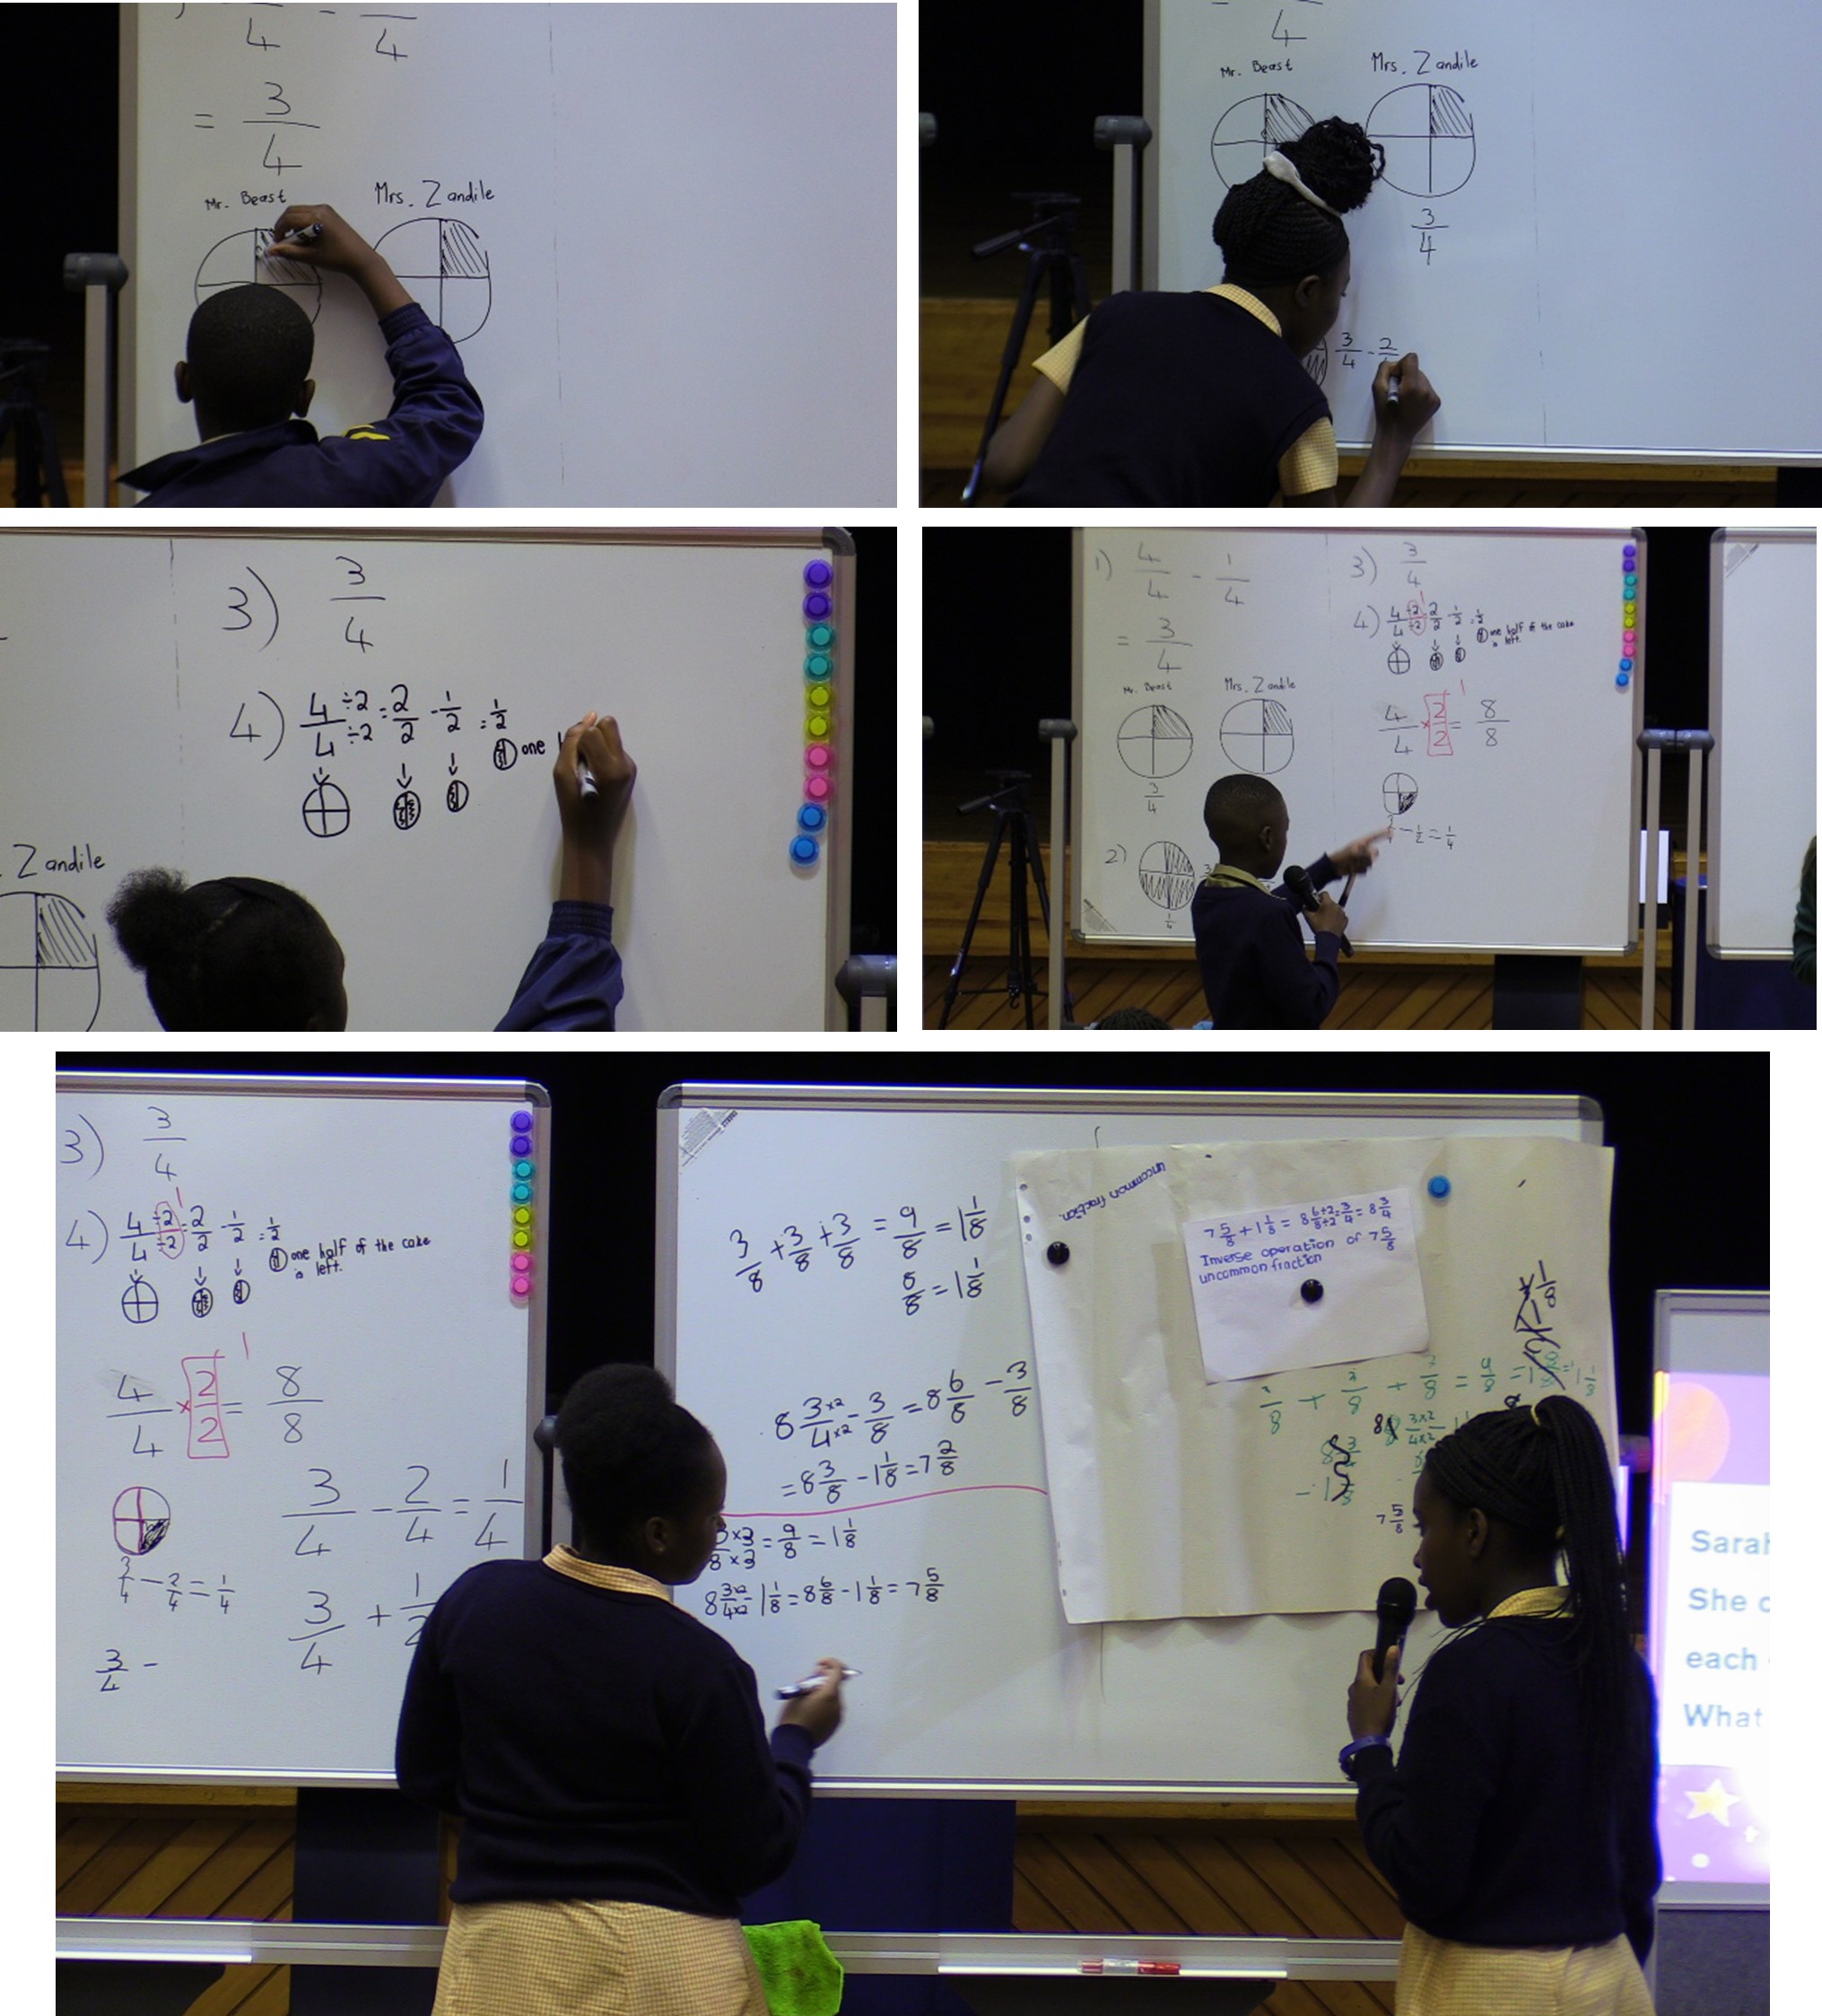 4 - 4
= 3/4
Mr. Beast Mrs. Zandile
4
Mr. Beast Mrs. Zandile
3/4
3/4 - 2
3) 3/4
4) 4/4 ÷2/÷2 = 2/2 - 1/2 = 1/2
one
Zandile
1) 4/4 - 1/4
= 3/4
Mr. Beast Mrs. Zandile
3/4
2)
1/4
3) 3/4
4) 4/4 ÷2/÷2 2/2 - 1/2 = 1/2
one half of the cake
is left.
1
4/4 × 2/2 = 8/8
- 1/2 = 1/4
3) 3/4
1
4) 4/4 ÷2/÷2 = 2/2 - 1/2 = 1/2
one half of the cake
is left.
1
4/4 × 2/2 = 8/8
3/4 - 2/4 = 1/4
3/4 - 2/4 = 1/4
3/4 + 1/2
3/4 -
3/8 + 3/8 + 3/8 = 9/8 = 1 1/8
= 1 1/8
8 3/4 ×2/×2 - 3/8 = 8 6/8 - 3/8
= 8 3/8 - 1 1/8 = 7 2/8
3/8 ×3/×3 = 9/8 = 1 1/8
8 3×2/4×2 - 1 1/8 = 8 6/8 - 1 1/8 = 7 5/8
uncommon fraction.
7 5/8 + 1 1/8 = 8 6÷2/8÷2 = 3/4 = 8 3/4
Inverse operation of 7 5/8
uncommon fraction
1/8
+ + 3/8 = 9/8 = 1 1/8
8 3×2/4×2
7 5/8
Sarah
She
each
What